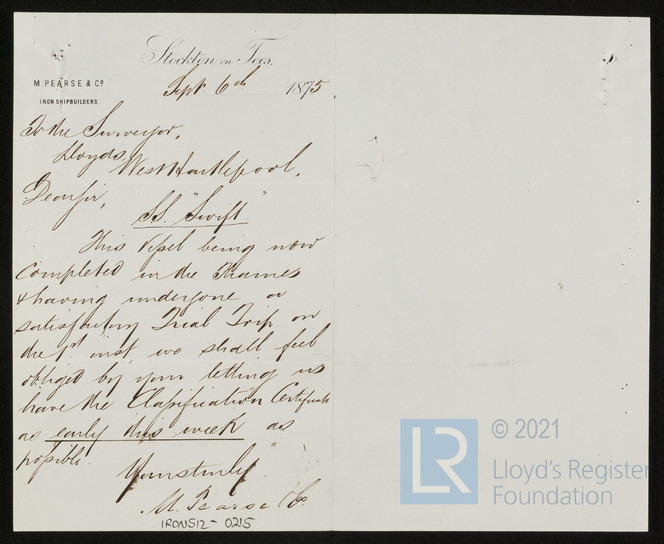 Stockton on Tees.
M. PEARSE & Co
IRON SHIPBUILDERS.
Septr 6th 1875
To the Surveyor,
Lloyds,
West Hartlepool,
Dear Sir,
S.S. "Swift"
This Vessel being now
completed in the Thames
& having undergone a
satisfactory Trial Trip on
the 1st inst, we shall feel
obliged by your letting us
have the Classification Certificate
as early this week as
possible.
Yours truly
M. Pearse & Co.
IRONS12 - 0215
© 2021
LR
Lloyd's Register
Foundation